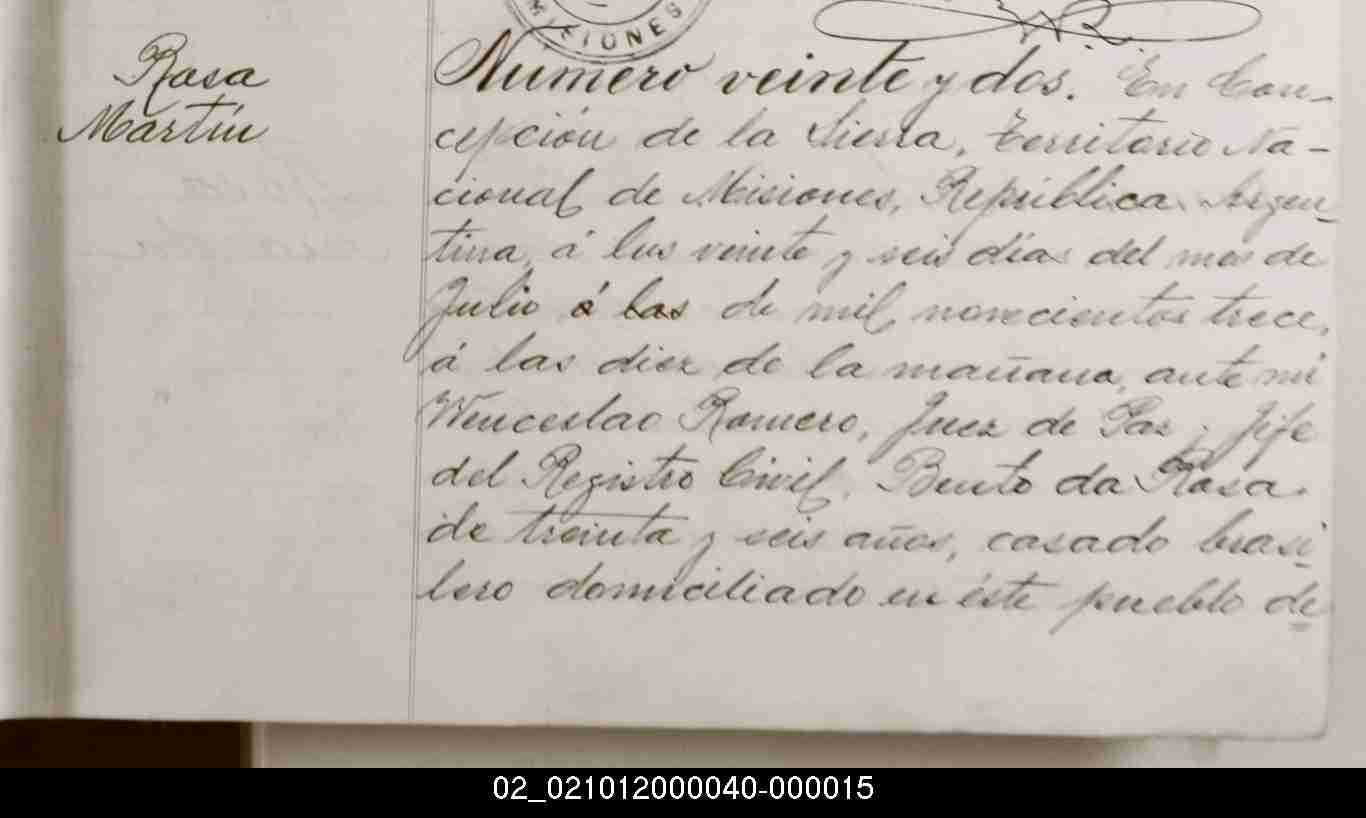 MISIONES
Rosa
Martín
Numero veinte y dos. En Con-
cepción de la Sierra, Territorio Na-
cional de Misiones, República Argen-
tina, á los veinte y seis días del mes de
Julio á las de mil novecientos trece,
á las diez de la mañana, ante mi
Wenceslao Romero, Juez de Paz y Jefe
del Registro Civil, Bento da Rosa
de treinta y seis años, casado brasi-
lero domiciliado en éste pueblo de
02_021012000040-000015